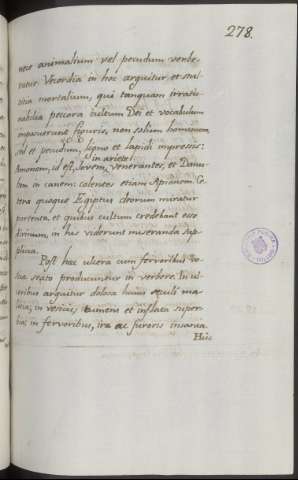 278.
nere animalium vel pecudum verbe-
retur. Vecordia in hoc arguitur et stul-
titia mortalium, qui tanquam irratio-
nabilia peccora cultum Dei et vocabulum
imposuerunt figuris, non solum hominum
sed et pecudum, ligno et lapidi impressis:
in ariete
Amonem, id est, Jovem, venerantes, et Danu-
bin in canem colentes etiam Apianom. Ce-
tra quoque Egiptus deorum miratur
portenta, et quibus cultum credebant esse
divinum, in his viderunt miseranda sup-
plicia.
Post hac ulcera cum fervoribus vo-
sexto producuntur in verbere. In ul-
ceribus arguitur dolosa huius seculi ma-
litia, in vesicis tumens et inflata super-
bia; in fervoribus, ira ac furoris insania.
Huc